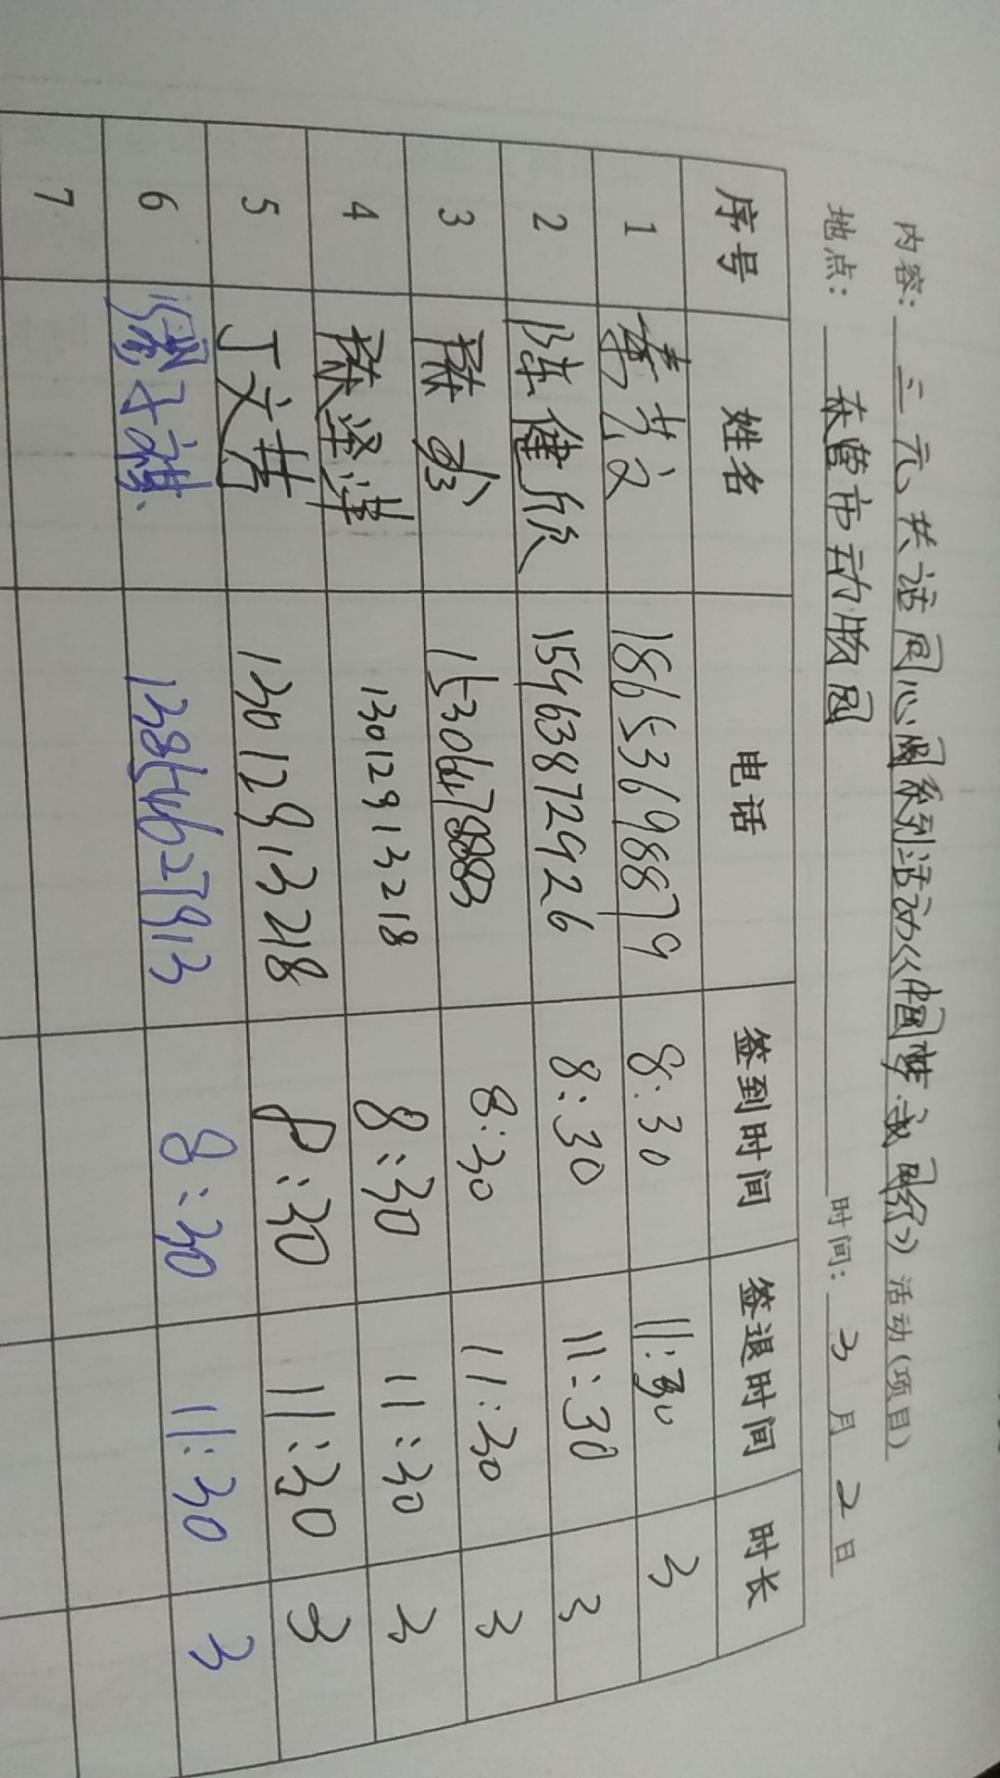 内容：三元共话同心圆系列活动《中国梦·我同行》活动（项目）
地点：东营市动物园 时间：3月2日
序号 姓名 电话 签到时间 签退时间 时长
1 18653698879 8:30 11:30 3
2 陈健欣 15463872926 8:30 11:30 3
3 8:30 11:30 3
4 13012913218 8:30 11:30 3
5 丁文 13012913218 8:30 11:30 3
6 徐子祺 13854627913 8:30 11:30 3
7